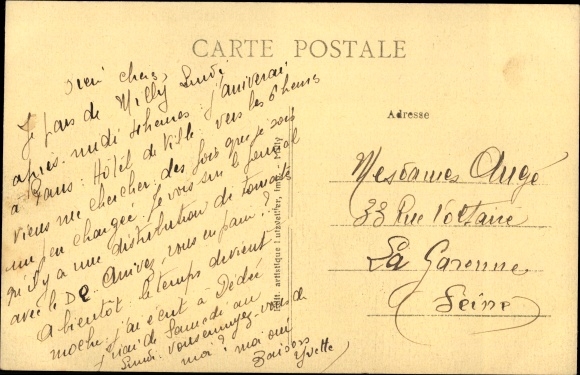 CARTE POSTALE
chers,
Je pars de Milly Lundi
après-midi 4 heures j'arriverai
à Paris : Hôtel de Ville : vers les 6 heures
viens me chercher, des fois que je sois
un peu chargée. Je vois sur le journal
qu'il y a une distribution de tomate
avec le DQ. Arrivez vous en pain ?
A bientôt : le temps devient
moche : j'ai écrit à Dédée
de Samedi au
Lundi : vous ennuyez vous de
moi ? moi oui
Baisers
Yvette
Edit. artistique Lutzvetler, Imp., Milly
Adresse
Mesdames Augé
33 Rue Voltaire
La Garenne
Seine